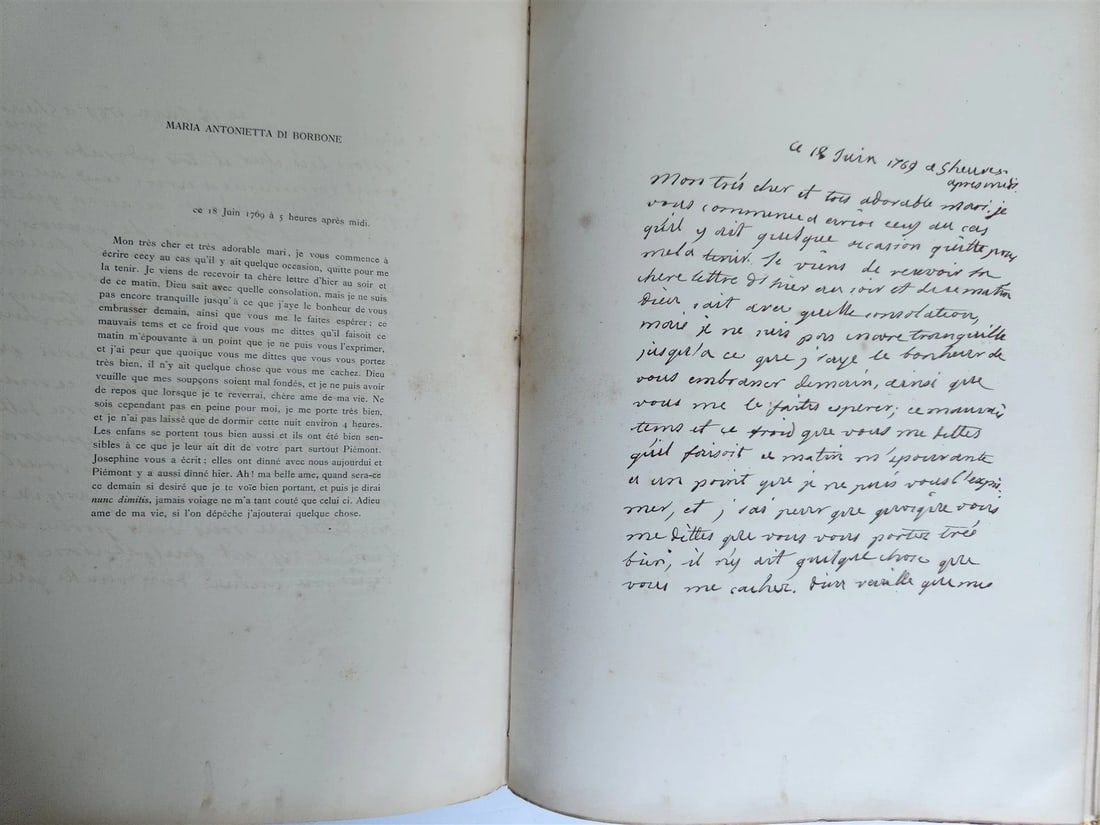 MARIA ANTONIETTA DI BORBONE
ce 18 Juin 1769 à 5 heures après midi.
Mon très cher et très adorable mari, je vous commence à
écrire cecy au cas qu'il y ait quelque occasion, quitte pour me
la tenir. Je viens de recevoir ta chère lettre d'hier au soir et
de ce matin. Dieu sait avec quelle consolation, mais je ne suis
pas encore tranquille jusqu'à ce que j'aye le bonheur de vous
embrasser demain, ainsi que vous me le faites espérer; ce
mauvais tems et ce froid que vous me dittes qu'il faisoit ce
matin m'épouvante à un point que je ne puis vous l'exprimer,
et j'ai peur que quoique vous me dittes que vous vous portez
très bien, il n'y ait quelque chose que vous me cachez. Dieu
veuille que mes soupçons soient mal fondés, et je ne puis avoir
de repos que lorsque je te reverrai, chère ame de ma vie. Ne
sois cependant pas en peine pour moi, je me porte très bien,
et je n'ai pas laissé que de dormir cette nuit environ 4 heures.
Les enfans se portent tous bien aussi et ils ont été bien sen-
sibles à ce que je leur ait dit de votre part surtout Piémont.
Josephine vous a écrit; elles ont dinné avec nous aujourdui et
Piémont y a aussi dinné hier. Ah! ma belle ame, quand sera-ce
ce demain si desiré que je te voïe bien portant, et puis je dirai
nunc dimitis, jamais voiage ne m'a tant couté que celui ci. Adieu
ame de ma vie, si l'on dépêche j'ajouterai quelque chose.
ce 18 Juin 1769 a 5 heures
apres midi.
Mon trés cher et trés adorable mari, je
vous commence a ecrire cecy au cas
qu'il y ait quelque occasion quitte pour
me la tenir. Je viens de recevoir ta
chere lettre d'hier au soir et de ce matin
Dieu sait avec quelle consolation,
mais je ne suis pas encore tranquille
jusqu'a ce que j'aye le bonheur de
vous embrasser demain, ainsi que
vous me le faites esperer; ce mauvais
tems et ce froid que vous me dittes
qu'il faisoit ce matin m'epouvante
a un point que je ne puis vous l'expri
mer, et j'ai peur que quoique vous
me dittes que vous vous portez trés
bien, il n'y ait quelque chose que
vous me cachez. Dieu veuille que mes